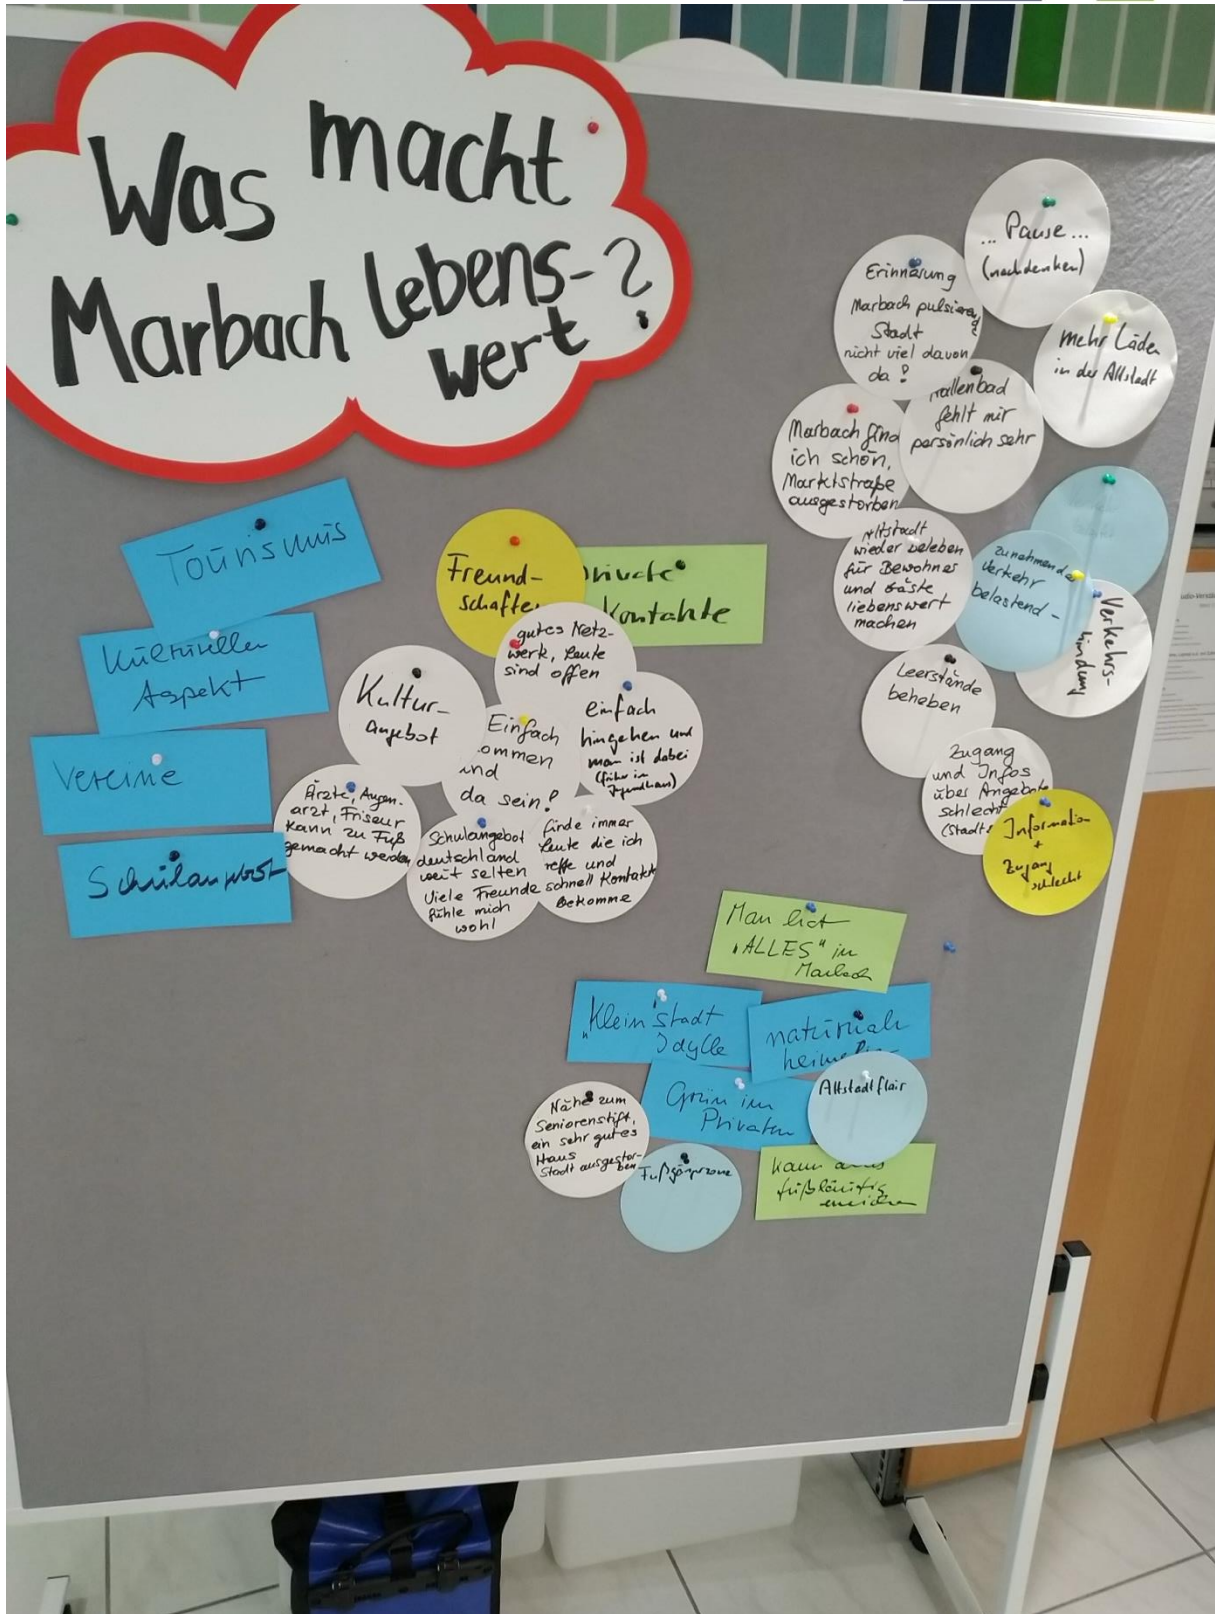 Was macht
Marbach Lebens-
wert?
Tourismus
Kultureller
Aspekt
Vereine
Schulangebot
Freund-
schaften
private
Kontakte
gutes Netz-
werk, Leute
sind offen
Kultur-
angebot
Einfach
kommen
und
da sein!
einfach
hingehen und
man ist dabei
(früher im
Jugendhaus)
Ärzte, Augen-
arzt, Friseur
kann zu Fuß
gemacht werden
Schulangebot
deutschland
weit selten
Viele Freunde
fühle mich
wohl
finde immer
Leute die ich
treffe und
schnell Kontakte
bekomme
... Pause ...
(nachdenken)
Erinnerung
Marbach pulsierende
Stadt
nicht viel davon
da?
mehr Läden
in der Altstadt
Hallenbad
fehlt mir
persönlich sehr
Marbach find
ich schön,
Marktstraße
ausgestorben
Altstadt
wieder beleben
für Bewohner
und Gäste
liebenswert
machen
zunehmender
Verkehr
belastend -
Verkehrs-
bindung
Leerstände
beheben
Zugang
und Infos
über Angebote
schlecht
(Stadts
Information
+
Zugang
schlecht
Man hat
"ALLES" in
Marbach
"Kleinstadt"
Idylle
natürlich
Grün im
Privaten
Altstadtflair
Nähe zum
Seniorenstift,
ein sehr gutes
Haus
Stadt ausgestor-
ben
Fußgängerzone
kann alles
fußläufig
erreichen